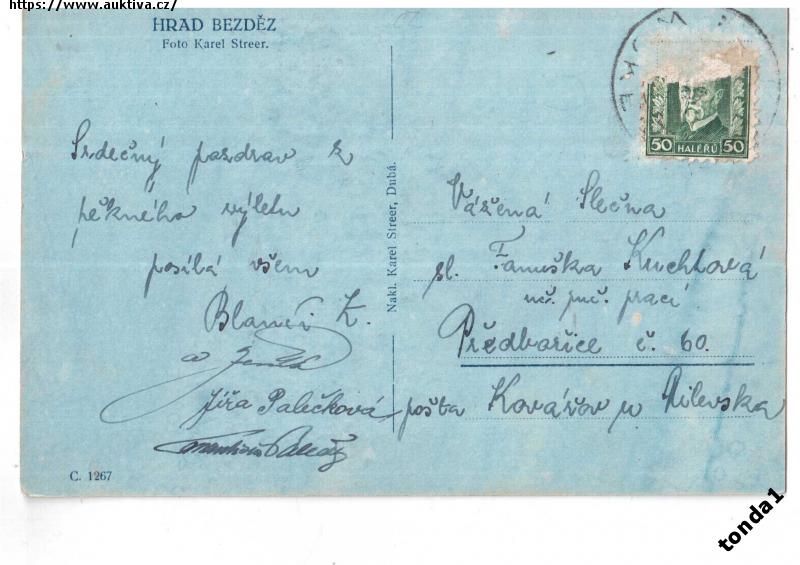 https://www.auktiva.cz/
HRAD BEZDĚZ
Foto Karel Streer.
50 HALÉŘŮ 50
Srdečný pozdrav z
pěkného výletu
posílá všem
K.
a
Jiřa Palečková
C. 1267
Nakl. Karel Streer, Dubá.
Vážená Slečna
sl. Fanuška Kuchtová
uč. prací
Předbořice č. 60.
pošta Kovářov u Milevska
tonda1